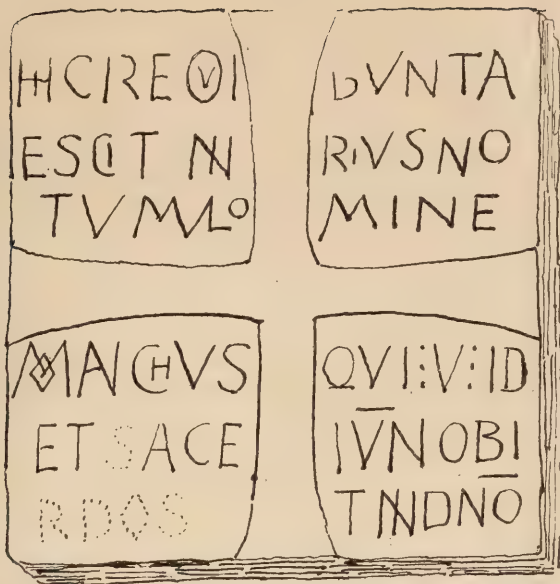 HICREQVI
ESCIT IN
TVMVLO
BVNTA
RIVSNO
MINE
MONACHVS
ET SACE
RDOS
QVI⋮V⋮ID
IV̅NOBI
T IN DN̅O